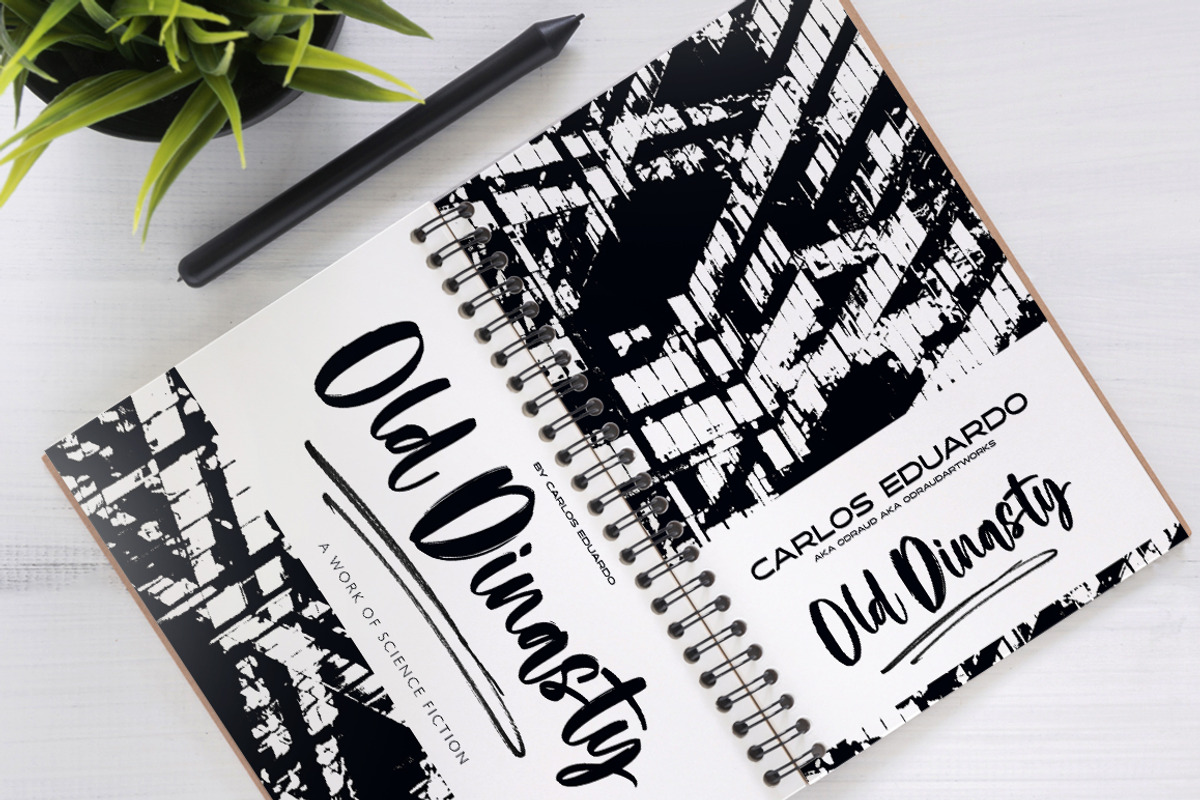 Old Dinasty
BY CARLOS EDUARDO
A WORK OF SCIENCE FICTION
CARLOS EDUARDO
AKA ODRAUD AKA ODRAUDARTWORKS
Old Dinasty